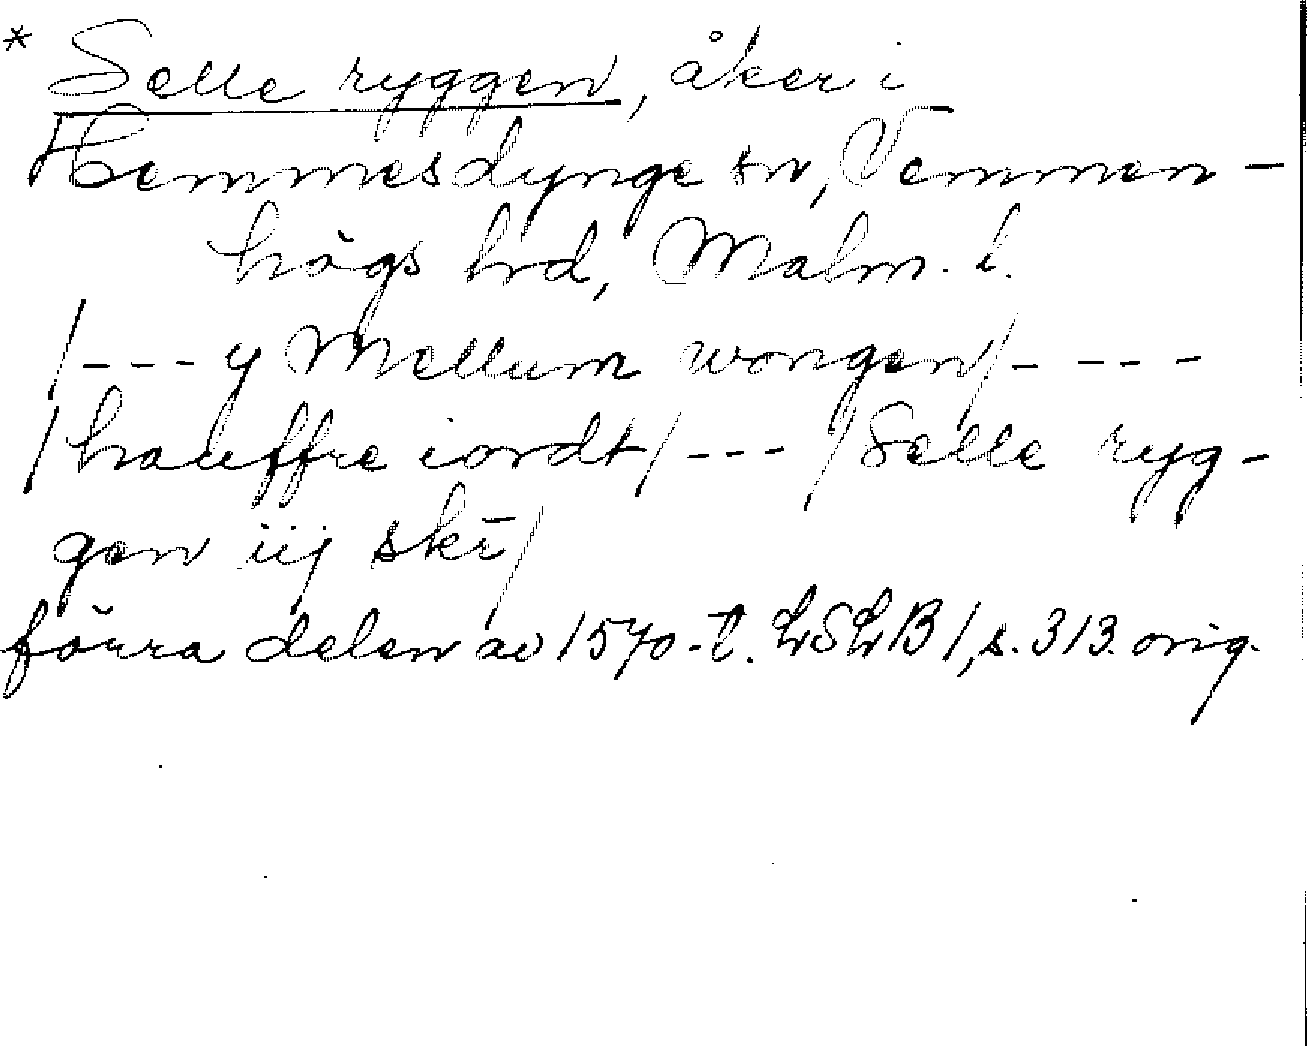 * Selle ryggen, åker i
Hemmesdynge sn, Vemmen-
högs hrd, Malm. l.
/--- y Mellum wongen/----
/hauffre iordt/---/Selle ryg-
gen iij skī/
förra delen av 1570-t. LSLB 1, s. 313. orig.